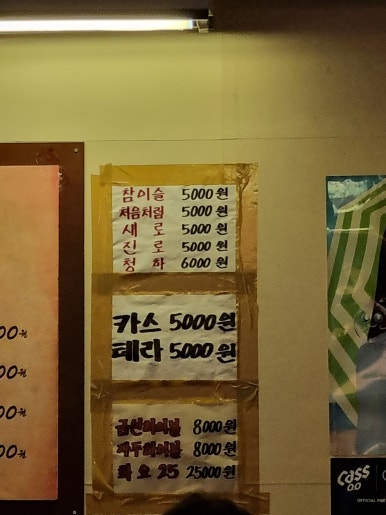 참이슬 5000원
처음처럼 5000원
새로 5000원
진로 5000원
청하 6000원
카스 5000원
테라 5000원
8000원
8000원
25 25000원
00원
00원
00원
00원
Cass
0.0